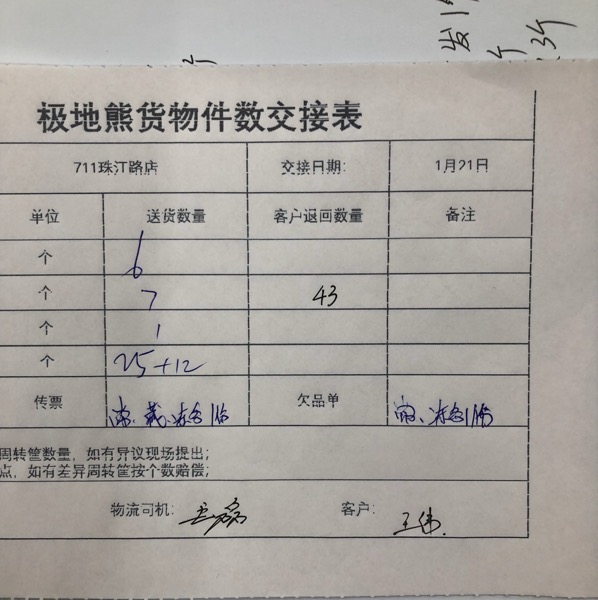 发1个
个 3个
个
极地熊货物件数交接表
711珠江路店 交接日期: 1月21日
单位 送货数量 客户退回数量 备注
个 6
个 7 43
个 1
个 25+12
传票 欠品单
周转筐数量, 如有异议现场提出;
点, 如有差异周转筐按个数赔偿;
物流司机: 客户: 王伟.